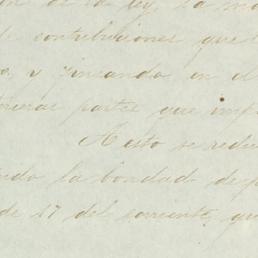 de la ley, la
de contribuciones que
y fincando en el
partes que imp
A esto se redu
ndo la bondad de
de 17 del corriente, qu